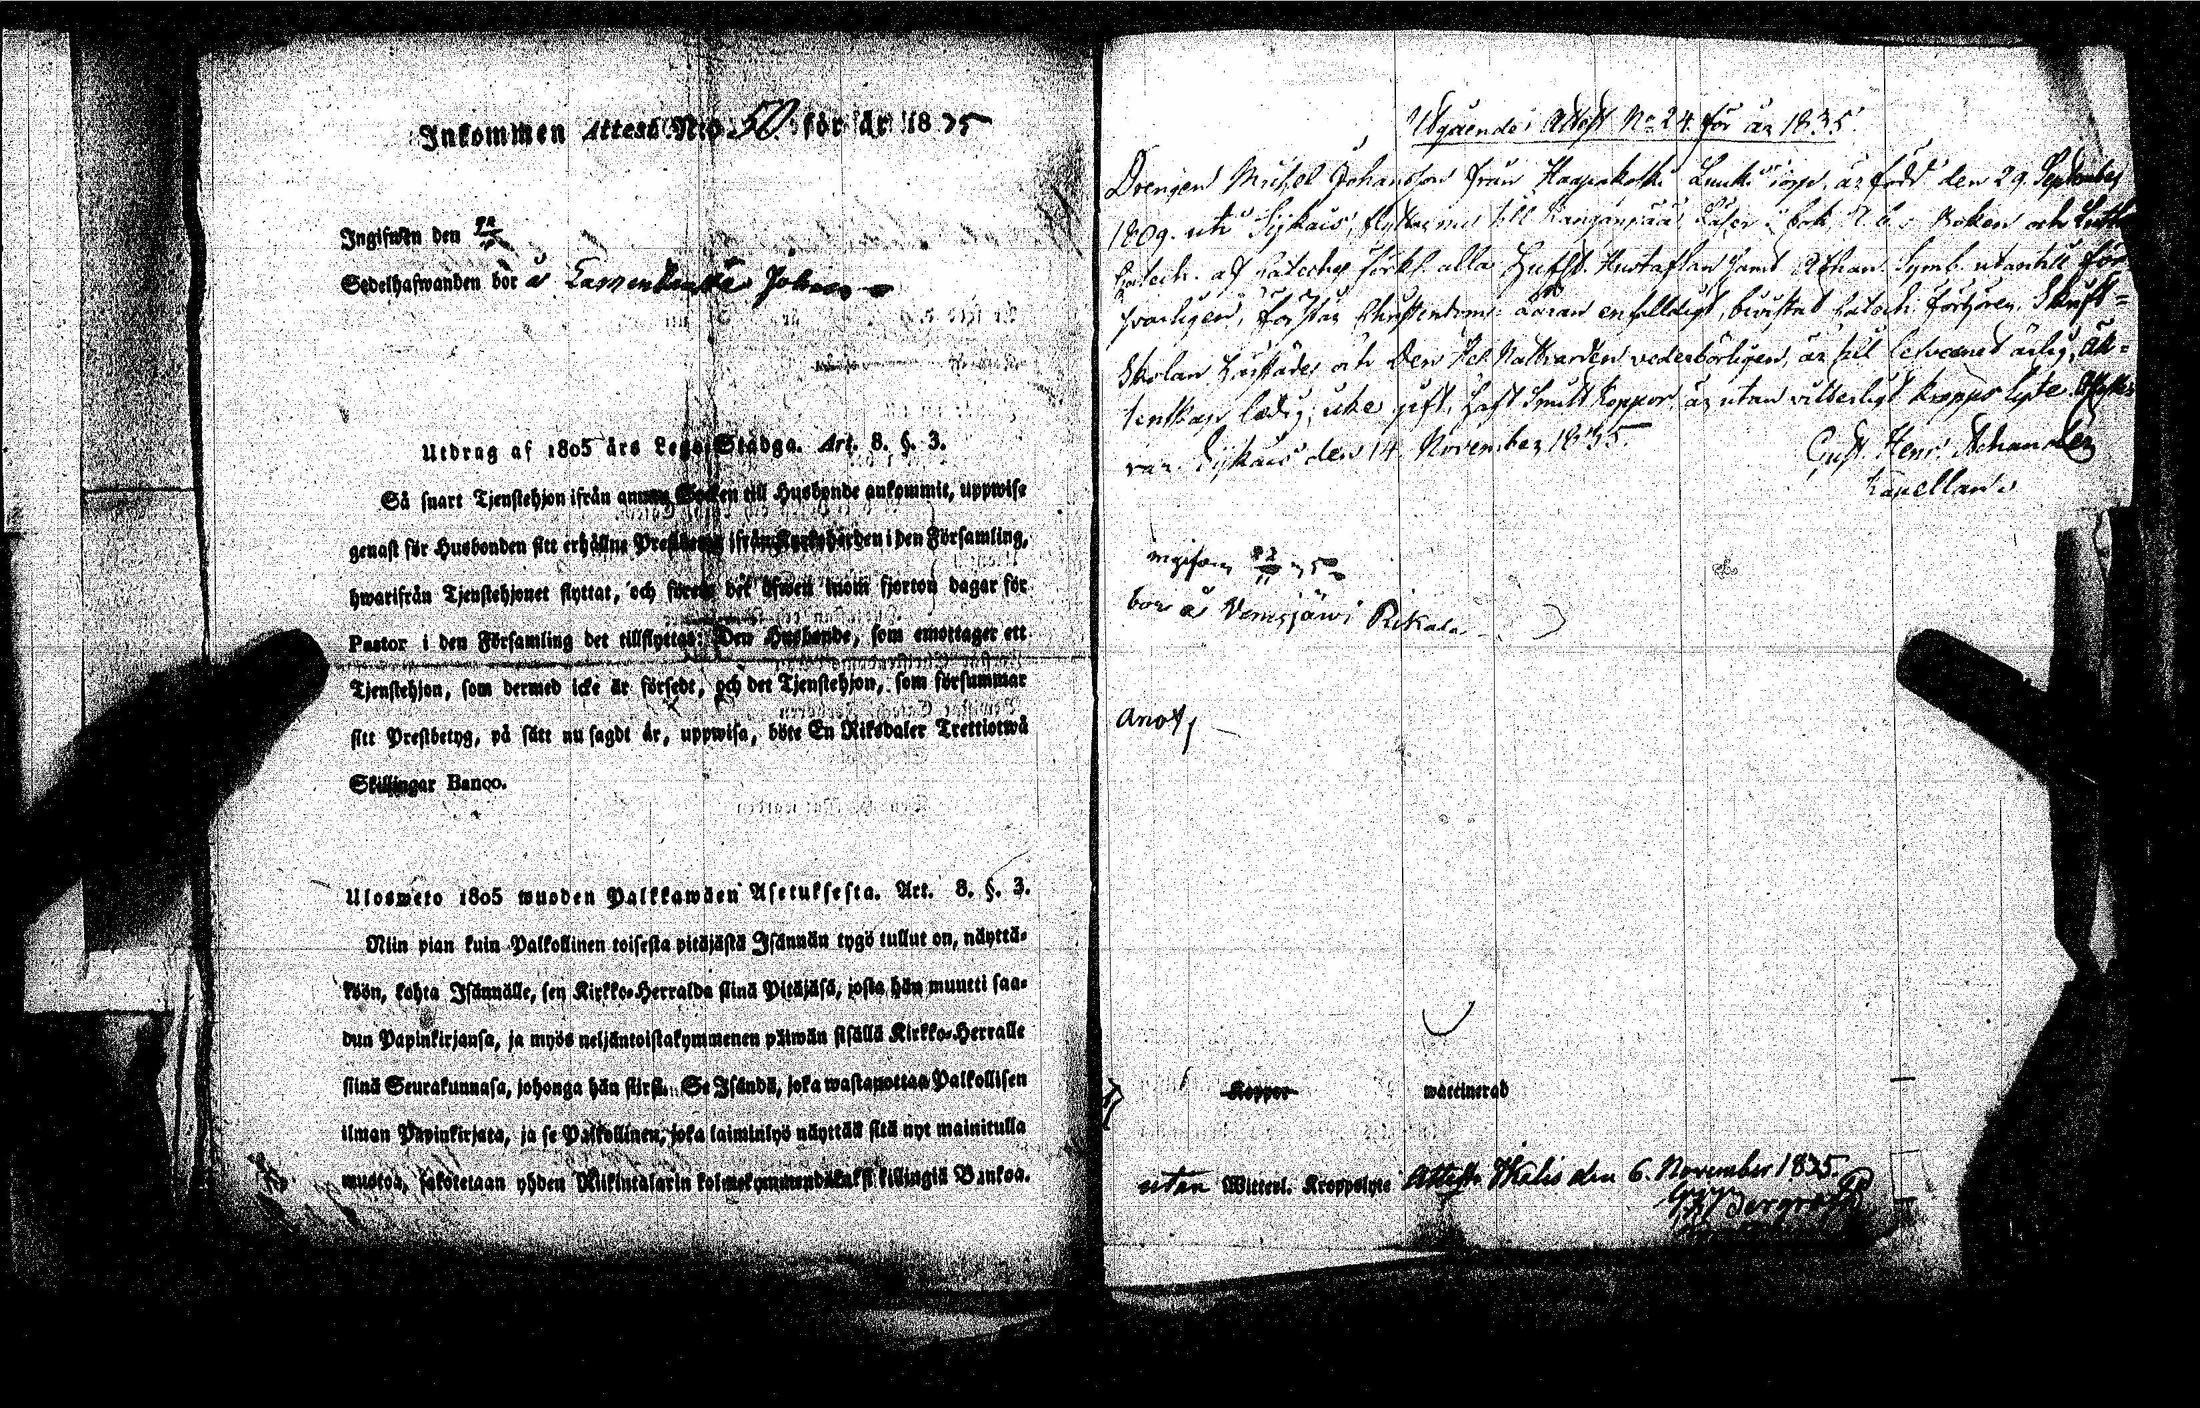 Inkommen Attest N:o 50 för år 1835
Ingifwen den 22/11
Sedelhafwanden bor å Johan
Utdrag af 1805 års Lego-Stadga. Art. 8. §. 3.
Så snart Tjenstehjon ifrån annan Socken till Husbonde ankommit, uppwise
genast för Husbonden sitt erhållne Prestbetyg ifrån Kyrkoherden i den Församling,
hwarifrån Tjenstehjonet flyttat, och förete det äfwen inom fjorton dagar för
Pastor i den Församling det tillflyttat; Den Husbonde, som emottager ett
Tjenstehjon, som dermed icke är försedt, och det Tjenstehjon, som försummar
sitt Prestbetyg, på sätt nu sagdt är, uppwisa, böte En Riksdaler Trettiotwå
Skillingar Banco.
Ulosweto 1805 wuoden Palkkawäen Asetuksesta. Art. 8. §. 3.
Niin pian kuin Palkollinen toisesta pitäjästä Isännän tygö tullut on, näyttä-
köön, kohta Isännälle, sen Kirkko-Herralda siinä Pitäjäsä, josta hän muutti saa-
dun Papinkirjansa, ja myös neljäntoistakymmenen päiwän sisällä Kirkko-Herralle
siinä Seurakunnasa, johonga hän siirsi. Se Isändä, joka wastanottaa Palkollisen
ilman Papinkirjata, ja se Palkollinen, joka laiminlyö näyttää sitä nyt mainitulla
muotoa, sakotetaan yhden Riikintalarin kolmekymmendäkaksi killingiä Bankoa.
Utgående Attest No 24 för år 1835.
Drengen Michel Johansson från Haapakoski torp, är född den 29 September
1809 uti Sijkais, flyttar nu till Kangånpää, Läser i bok A.b.c Boken och Luth.
Catech. af Catechej förkl. alla Hust. samt Athan. Symb. utantill för-
svarligen, förstår Christendoms läran enfalldigt, bevistat Catech. förhören, Skrift-
Skolan och Den Hel. Nattvarden vederbörligen, är till lefvernet ärlig, Äk-
tenskap ledig, icke gift, haft Smitt koppor, är utan vitterligt kropps lyte.
Sijkais den 14 November 1835.
Gust. Henr. Achander
Kapellan
ingifven 22/11 35
bor å Venesjärwi Rikala
anot
Koppor waccinerad
utan Witterl. Kroppslyte Attest. Ikalis den 6. November 1835.